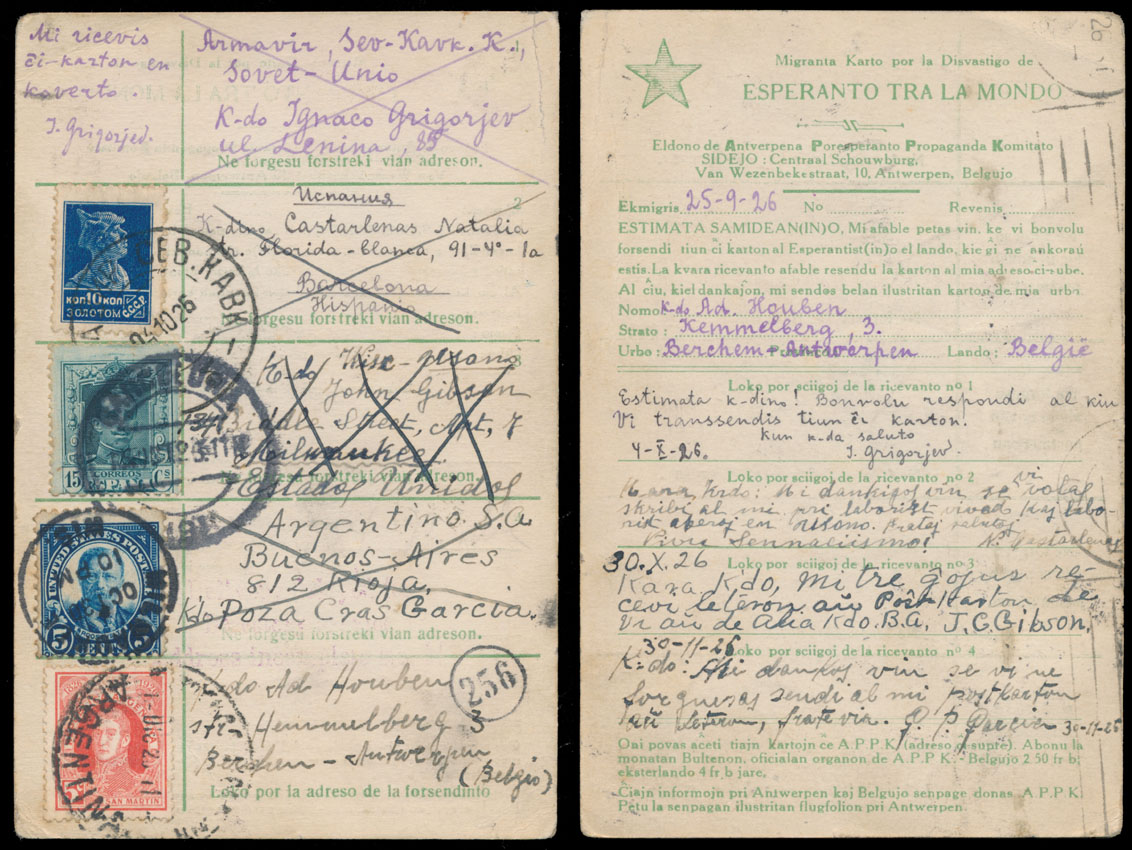 Mi ricevis
ĉi-karton en
koverto.
I. Grigorjev.
Armavir, Sev-Kavk. K.,
Sovet-Unio
K-do Ignaco Grigorjev
ul. Lenina, 85
Ne forgesu forstreki vian adreson.
Испания
2
K-dino Castarlenas Natalia
Florida-blanca, 91-4°-1a
Barcelona
Hispanio
forgesu forstreki vian adreson.
КОП 10 КОП
ЗОЛОТОМ
СССР
СЕВ.КАВК
04 10 26
K-do
John Gibson
Street, Apt, 7
Milwaukee
forgesu forstreki vian adreson
Estados Unidos
15 CORREOS Cs
ESPAÑA
Argentino. S.A
Buenos-Aires
812 Rioja,
K'do Poza Cras Garcia.
Ne forgesu forstreki vian adreson.
UNITED STATES POSTAGE
5 CENTS 5
K-do Ad Houben
str. Hemmelberg 3
Berchem - Antwerpen
(Belgio)
256
Loko por la adreso de la forsendinto
SAN MARTIN
ARGENTINA
Migranta Karto por la Disvastigo de
ESPERANTO TRA LA MONDO
Eldono de Antverpena Poresperanto Propaganda Komitato
SIDEJO : Centraal Schouwburg,
Van Wezenbekestraat, 10, Antwerpen, Belgujo
Ekmigris 25-9-26 No Revenis
ESTIMATA SAMIDEAN(IN)O, Mi afable petas vin, ke vi bonvolu
forsendi tiun ĉi karton al Esperantist(in)o el lando, kie ĝi ne ankoraŭ
estis. La kvara ricevanto afable resendu la karton al mia adreso ĉi-sube.
Al ĉiu, kiel dankaĵon, mi sendos belan ilustritan karton de mia urbo.
Nomo: k-do Ad. Houben
Strato : Kemmelberg, 3.
Urbo : Berchem-Antwerpen Lando : België
Loko por sciigoj de la ricevanto nº 1
Estimata k-dino! Bonvolu respondi al kiu
Vi transsendis tiun ĉi karton.
Kun k-da saluto
4-X-26. I. Grigorjev.
Loko por sciigoj de la ricevanto nº 2
Kara K-do: Mi dankigos vin se vi volas
skribi al mi pri laborist vivado kaj labo-
en Usono. Frataj salutoj
Vivu Sennaciismo! N. Castarlenas
30.X.26 Loko por sciigoj de la ricevanto nº 3
Kara Kdo, mi tre gojus re-
cevi leteron aŭ Post Karton de
Vi aŭ de alia Kdo. B.A. J.C. Gibson.
30-11-26 Loko por sciigoj de la ricevanto nº 4
K-do: Mi dankos vin se vi ne
forgusas sendi al mi postkarton
aŭ leteron, frate via. P. Garcia 30-11-26
Oni povas aĉeti tiajn kartojn ĉe A.P.P.K. (adreso ĉi-supre). Abonu la
monatan Bultenon, oficialan organon de A.P.P.K. - Belgujo 2.50 fr b;
eksterlando 4 fr. b. jare.
Ĉiajn informojn pri Antwerpen kaj Belgujo senpage donas A.P.P.K.
Petu la senpagan ilustritan flugfolion pri Antwerpen.